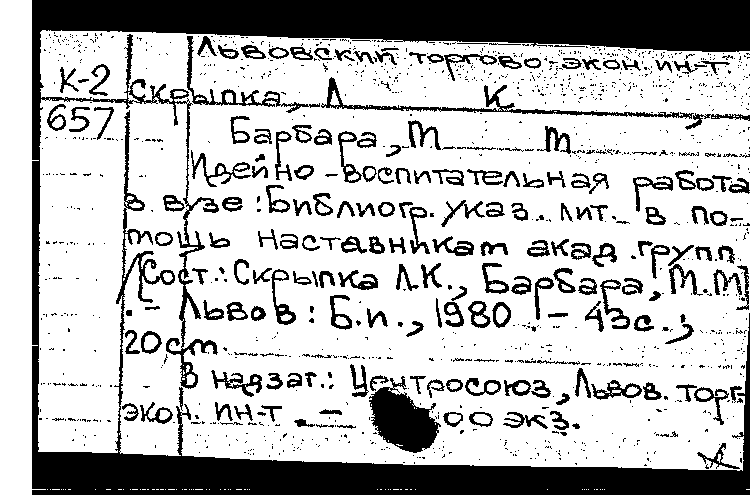 Львовский торгово-экон. ин-т.
К-2 Скрыпка, Л К
657
Барбара, М М
Идейно-воспитательная работа
в вузе: Библиогр. указ. лит. в по-
мощь наставникам акад. групп
/[Сост.: Скрыпка Л.К., Барбара, М.М]
.- Львов: Б.и., 1980. - 43с.;
20см.
В надзаг.: Центросоюз, Львов. торг.-
экон. ин-т. - 00 экз.